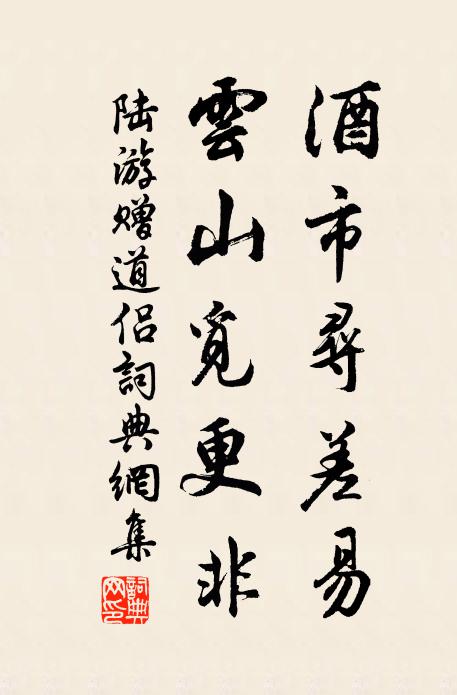 酒市尋差易
雲山覓更非
陆游赠道侣詞典網集
詞典网印